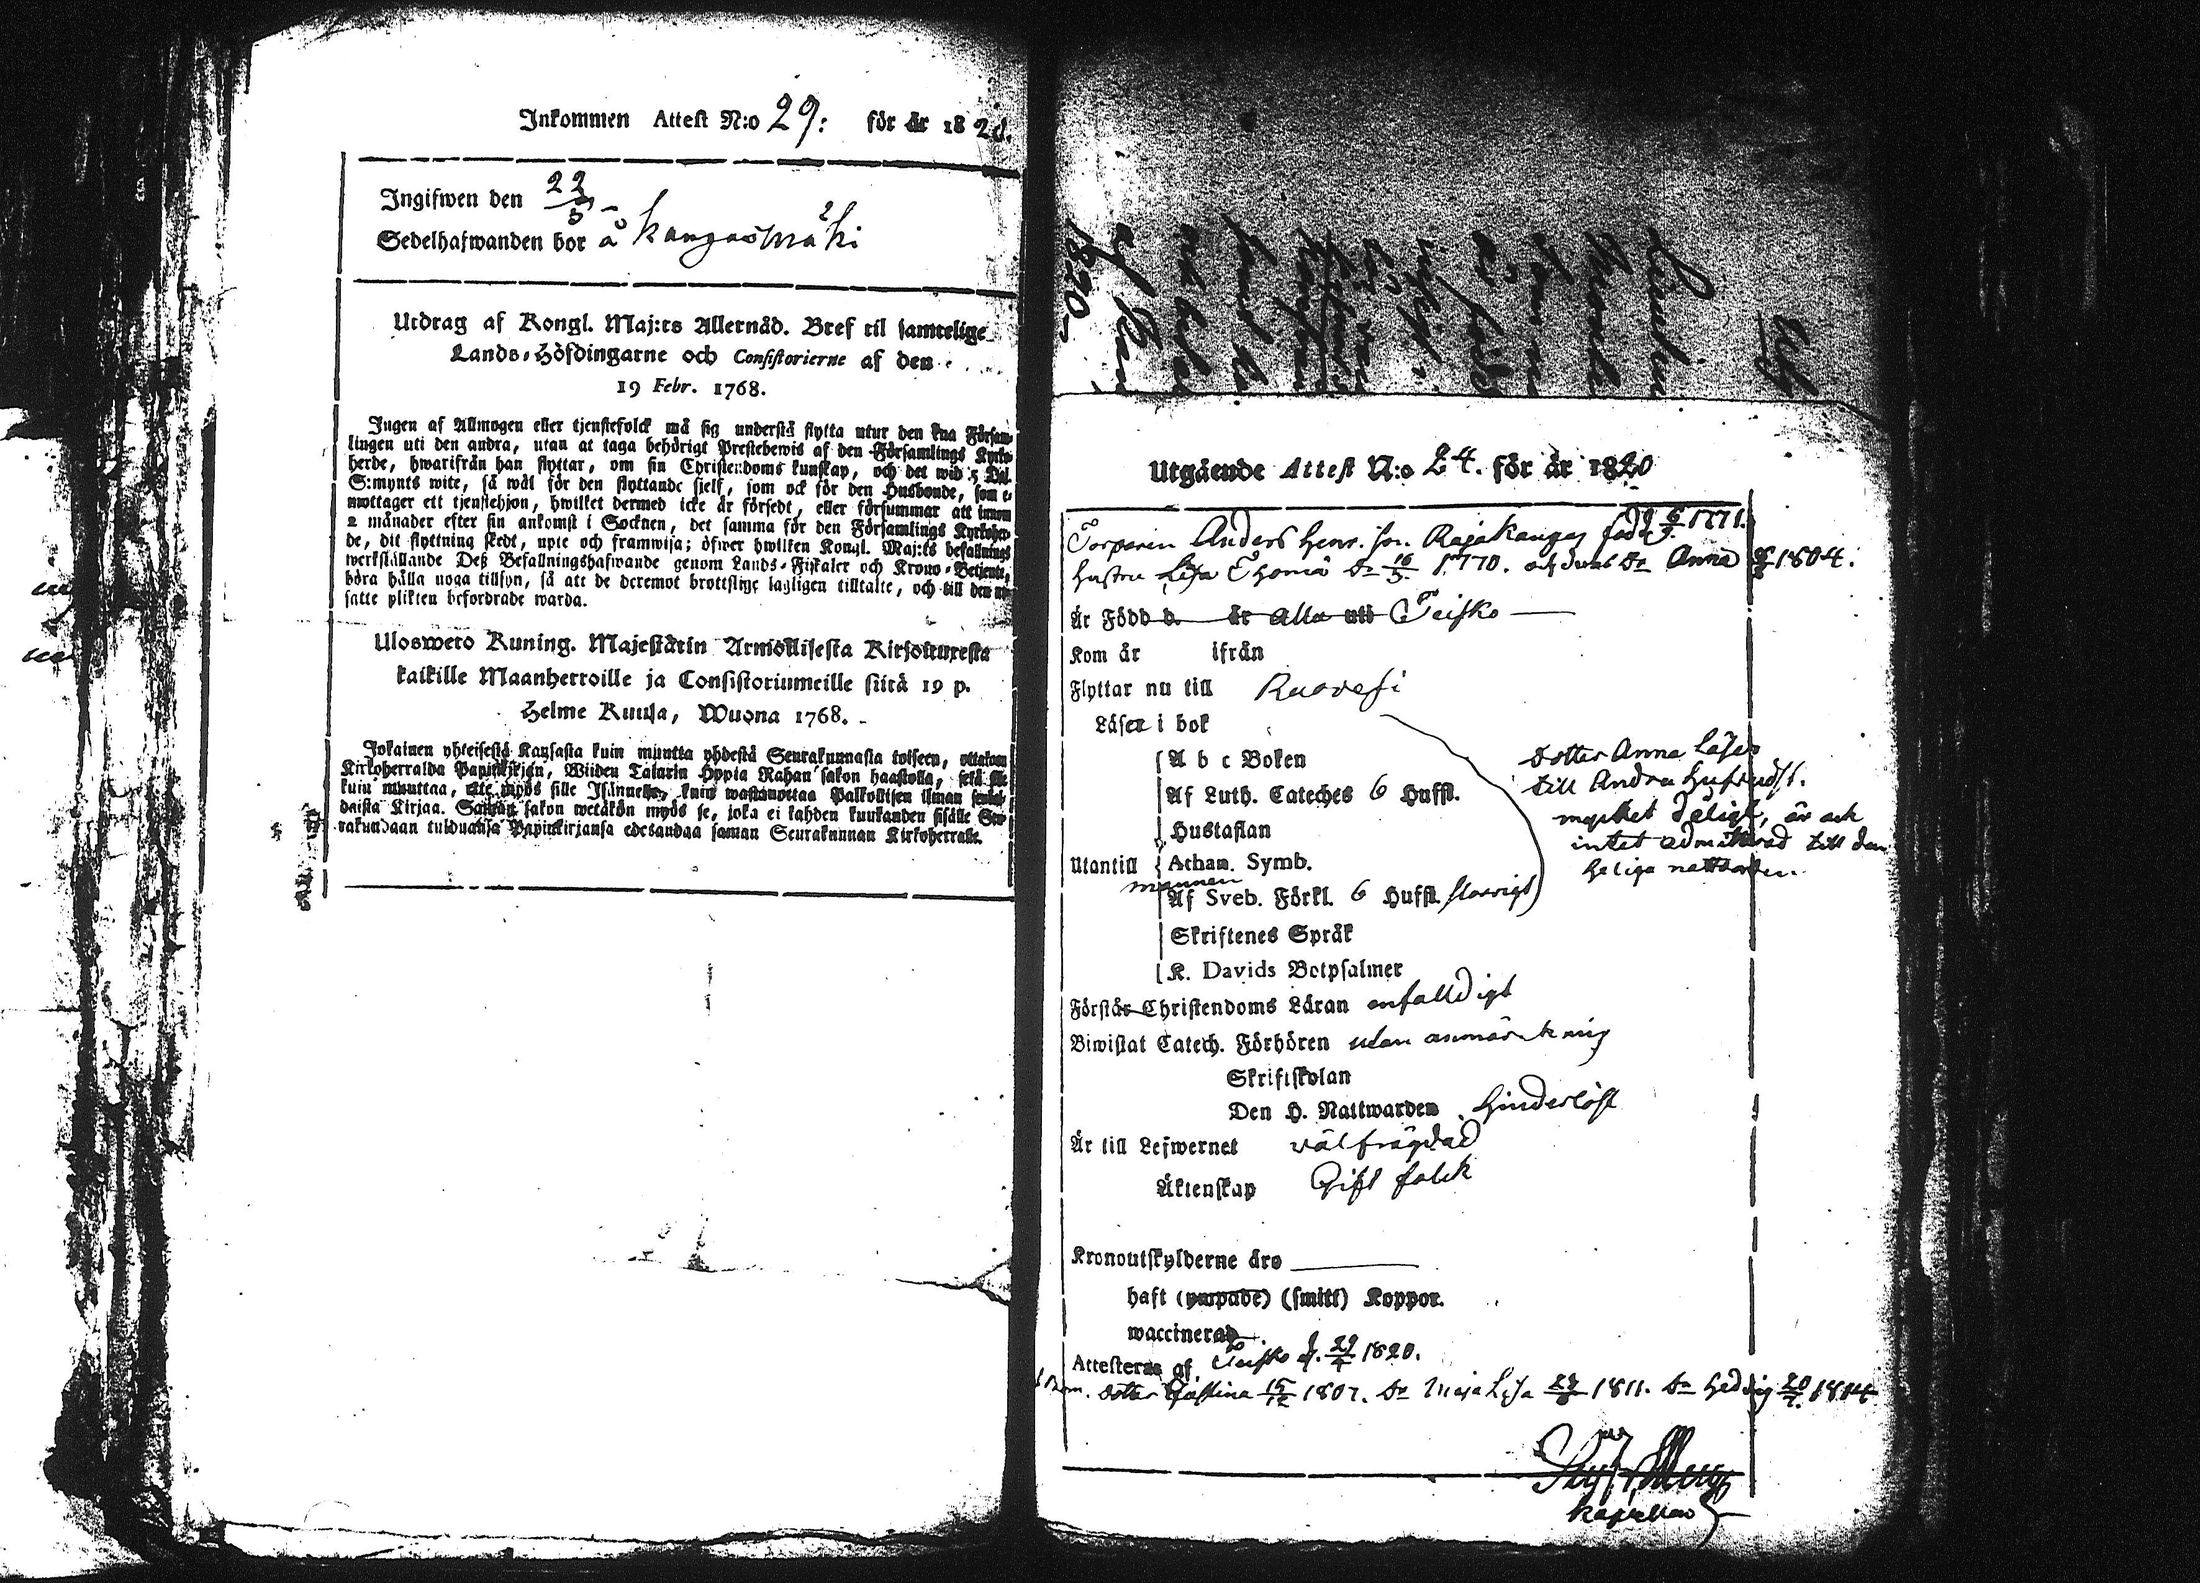 Inkommen Attest N:o 29: för år 1820.
Ingifwen den 22/5
Sedelhafwanden bor å Kangasmäki
Utdrag af Kongl. Maj:ts Allernåd. Bref til samtelige
Lands-Höfdingarne och Consistorierne af den
19 Febr. 1768.
Ingen af Allmogen eller tjenstefolck må sig understå flytta utur den ena Försam-
lingen uti den andra, utan at taga behörigt Prestebewis af den Församlings Kyrko-
herde, hwarifrån han flyttar, om sin Christendoms kunskap, och det wid 5 Dal.
S:mynts wite, så wäl för den flyttande sjelf, som ock för den Husbonde, som e-
mottager ett tjenstehjon, hwilket dermed icke är försedt, eller försummar att innom
2 månader efter sin ankomst i Socknen, det samma för den Församlings Kyrkoher-
de, dit flyttning skedt, upte och framwisa; öfwer hwilken Kongl. Maj:ts befallnings
werkställande Deß Befallningshafwande genom Lands-Fiskaler och Krono-Betjente,
böra hålla noga tillsyn, så att de deremot brottslige lagligen tilltalte, och till den ut-
satte plikten befordrade warda.
Ulosweto Kuning. Majestätin Armollisesta Kirjoituxesta
kaikille Maanherroille ja Consistoriumeille siitä 19 p.
Helme Kuusa, Wuona 1768.
Jokainen yhteisestä Kansasta kuin muutta yhdestä Seurakunnasta toiseen, ottakon
Kirkoherralda Papinkirjan, Wiiden Talarin Hopia Rahan sakon haastolla, sekä se
kuin muuttaa, että myös sille Isännelle, kuin wastanottaa Palkollisen ilman sencal-
daista Kirjaa. Saman sakon wetäkön myös se, joka ei kahden kuukauden sisälle Seu-
rakundaan tulduansa Papinkirjansa edesandaa saman Seurakunnan Kirkoherralle.
1820
Utgående Attest N:o 24. för år 1820
Torparen Anders Henr. son Rajakangas född 6/9 1771.
hustru Lisa Thomæ Dr 16/5 1770. och Anna 1804.
Är Född d. år alla uti Teisko
Kom år ifrån
Flyttar nu till Ruovesi
Läser i bok
A b c Boken
Af Luth. Cateches 6 Hufst.
Hustaflan
Utantill Athan. Symb.
mannen
Af Sveb. Förkl. 6 Hufst. slarvigt
Skriftenes Språk
K. Davids Botpsalmer
dotter Anna läser
till Andra hufvudst.
mycket dåligt, är ock
intet admitterad till den
heliga nattvarden.
Förstår Christendoms Läran enfalldigt
Biwistat Catech. Förhören utan anmärkning
Skriftskolan
Den H. Nattwarden hinderlöst
Är till Lefwernet välfrägdad
Äktenskap Gift folck
Kronoutskylderne äro
haft (ympade) (smitt) Koppor.
waccinerad.
Attesteras af Teisko d. 29/4 1820.
dotter Justina 15/12 1807. Dr Maja Lisa 1811. Dr Hedvig 20/7 1814
Kapellan